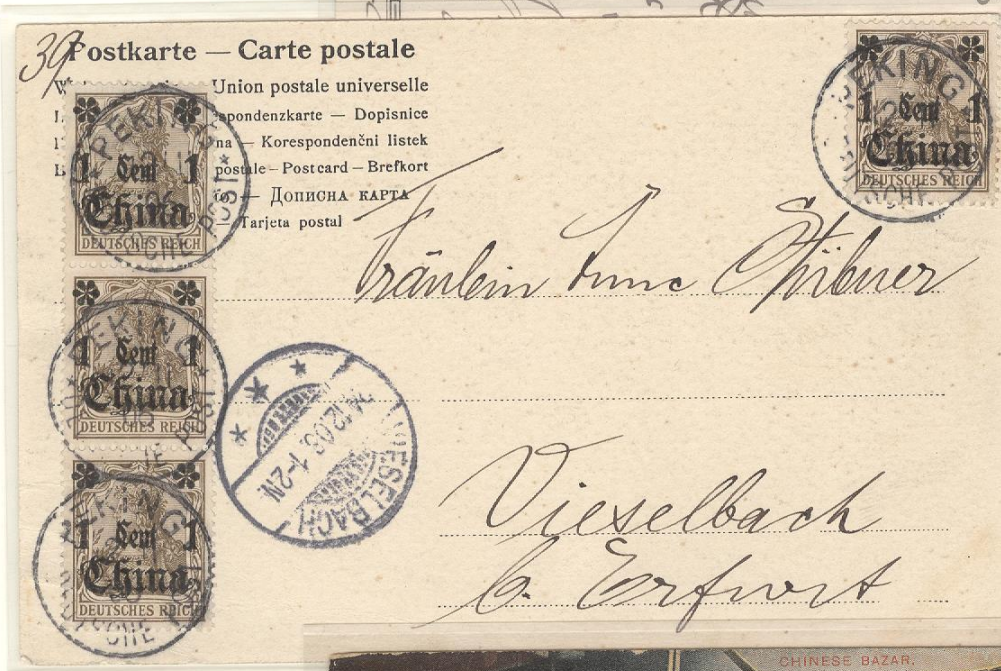 39
Postkarte — Carte postale
Union postale universelle
spondenzkarte — Dopisnice
na — Korespondenční listek
postale — Postcard — Brefkort
— Дописна карта
— Tarjeta postal
PEKING
DEUTSCHE POST
1 Cent 1
China
DEUTSCHES REICH
PEKING
DEUTSCHE POST
1 Cent 1
China
DEUTSCHES REICH
PEKING
1 Cent 1
China
DEUTSCHES REICH
PEKING
DEUTSCHE
1 Cent 1
China
DEUTSCHES REICH
Fräulein
VIESELBACH
1-2N.
Vieselbach
b. Erfurt
CHINESE BAZAR.